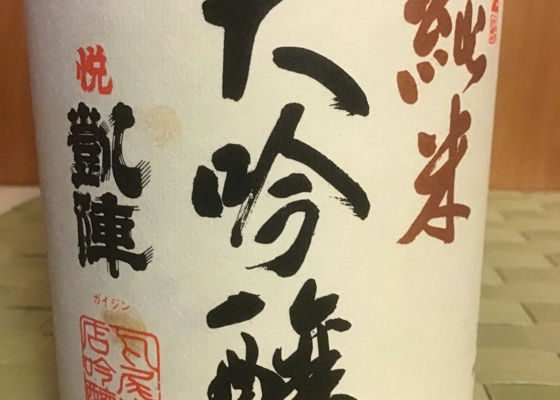 純米
大吟醸
悦
凱陣
ガイジン